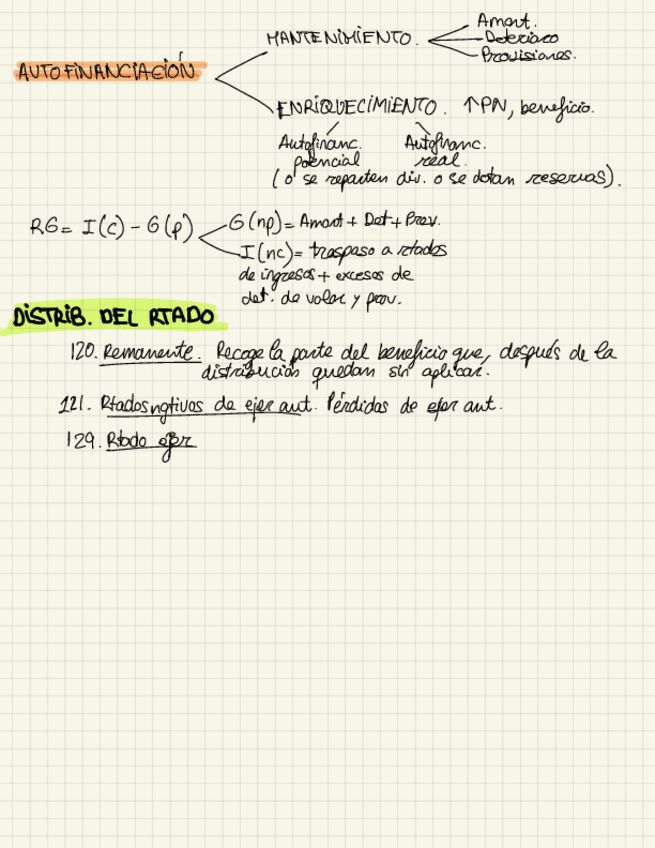 AUTOFINANCIACIÓN
MANTENIMIENTO.
Amort.
Deterioro
Provisiones.
ENRIQUECIMIENTO. ↑PN, beneficio.
Autofinanc. potencial
Autofinanc. real.
(o se reparten div. o se dotan reservas).
RG= I(c) - G(p)
G(np)= Amort + Det + Prov.
I(nc)= traspaso a rtados
de ingresos + excesos de
det. de valor y prov.
DISTRIB. DEL RTADO
120. Remanente. Recoge la parte del beneficio que, después de la
distribución quedan sin aplicar.
121. Rtados ngtivos de ejer ant. Pérdidas de ejer ant.
129. Rtado ejer